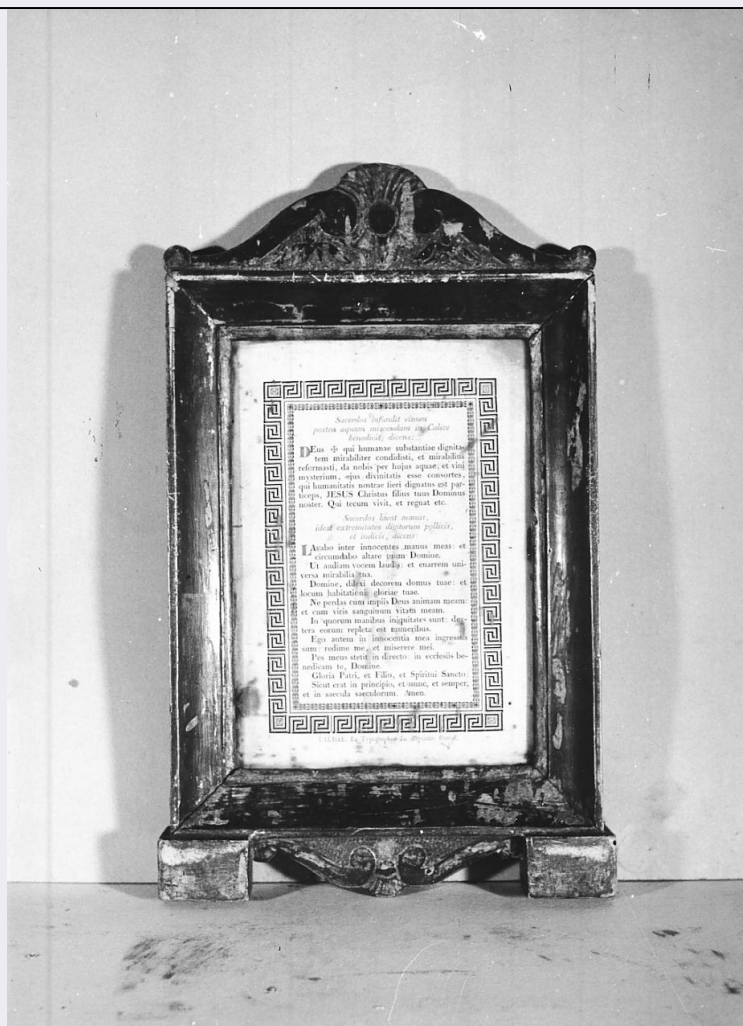 Sacerdos infundit vinum
postea aquam miscendam in Calice
benedicit, dicens:
DEus ✠ qui humanae substantiae dignita-
tem mirabiliter condidisti, et mirabilius
reformasti, da nobis per hujus aquae, et vini
mysterium, ejus divinitatis esse consortes,
qui humanitatis nostrae fieri dignatus est par-
ticeps, JESUS Christus filius tuus Dominus
noster. Qui tecum vivit, et regnat etc.
Sacerdos lavat manus,
idest extremitates digitorum pollicis,
et indicis, dicens:
LAvabo inter innocentes manus meas: et
circumdabo altare tuum Domine.
Ut audiam vocem laudis: et enarrem uni-
versa mirabilia tua.
Domine, dilexi decorem domus tuae: et
locum habitationis gloriae tuae.
Ne perdas cum impiis Deus animam meam:
et cum viris sanguinum vitam meam.
In quorum manibus iniquitates sunt: dex-
tera eorum repleta est muneribus.
Ego autem in innocentia mea ingressus
sum: redime me, et miserere mei.
Pes meus stetit in directo: in ecclesiis be-
nedicam te, Domine.
Gloria Patri, et Filio, et Spiritui Sancto.
Sicut erat in principio, et nunc, et semper,
et in saecula saeculorum. Amen.
Ex Typographia